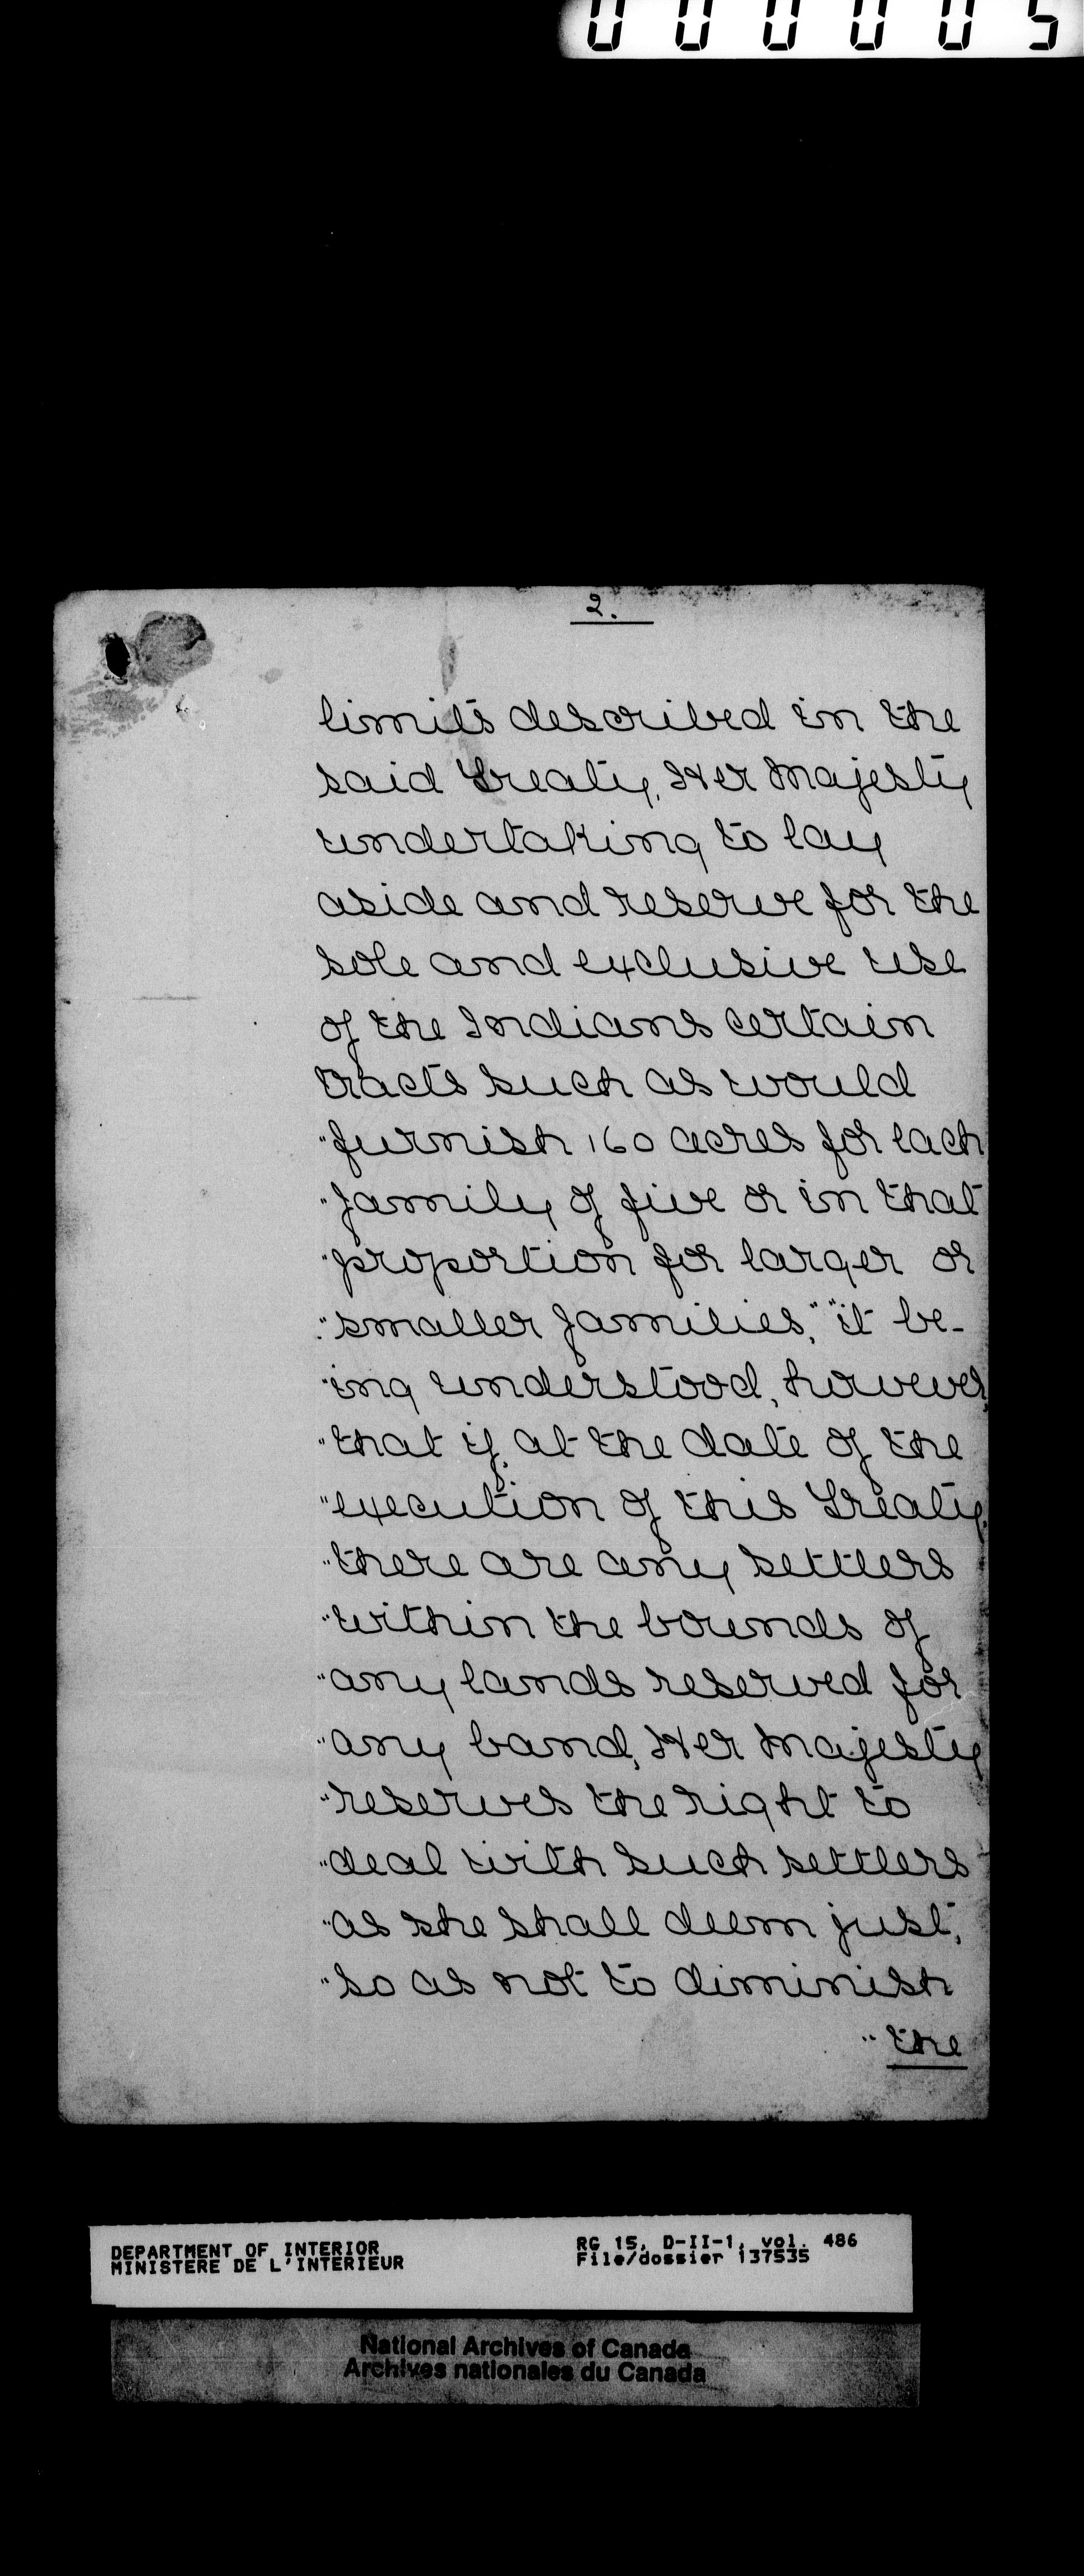 000005
2.
limits described in the
said Treaty, Her Majesty
undertaking to lay
aside and reserve for the
sole and exclusive use
of the Indians certain
tracts such as would
"furnish 160 acres for each
"family of five or in that
"proportion for larger or
"smaller families," "it be-
"ing understood, however,
"that if, at the date of the
"execution of this Treaty,
"there are any settlers
"within the bounds of
"any lands reserved for
"any band, Her Majesty
"reserves the right to
"deal with such settlers
"as she shall deem just,
"so as not to diminish
"the
DEPARTMENT OF INTERIOR
MINISTERE DE L'INTERIEUR
RG 15, D-II-1, vol. 486
File/dossier 137535
National Archives of Canada
Archives nationales du Canada